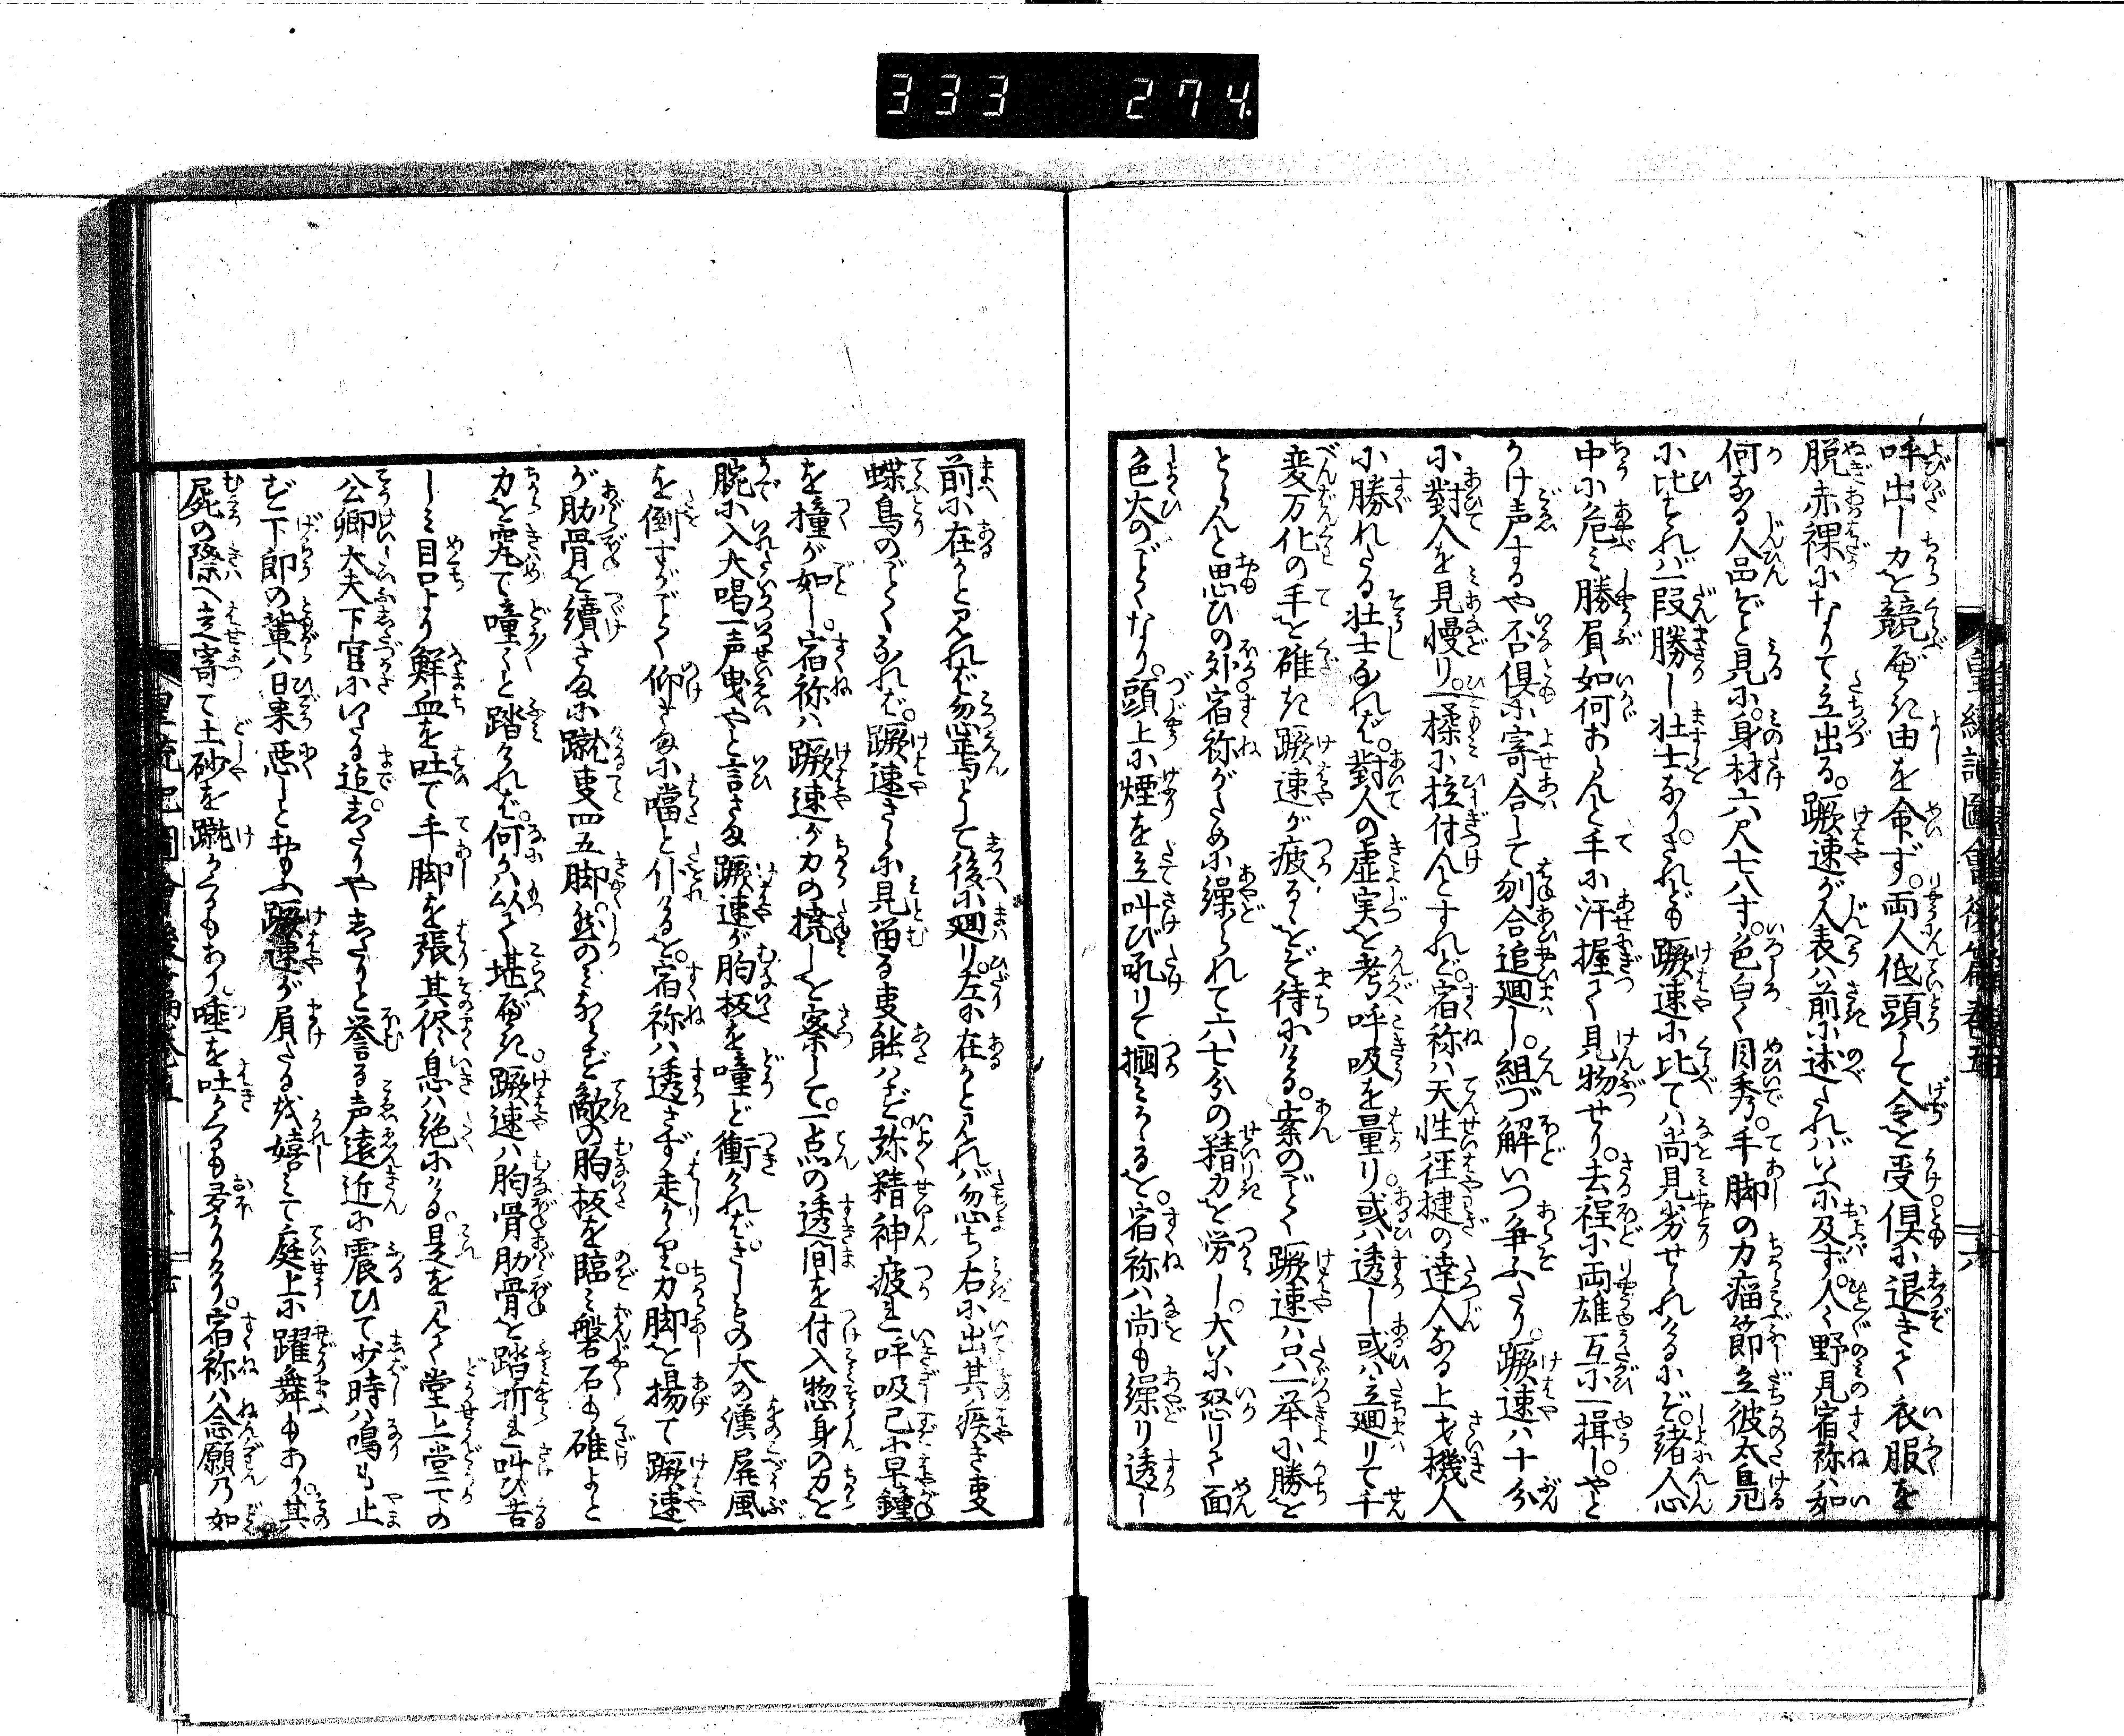 333 274.
呼出し力を競べき由を命ず。両人低頭して令を受倶に退きて衣服を
脱赤裸になりて立出る。蹶速が人表は前に述たればいふに及ず。人々野見宿祢は如
何なる人品ぞと見に。身材六尺七八寸。色白く目秀。手脚の力瘤節立彼太鼠
に比すれば一段勝し壮士なり。されども蹶速に比ては尚見劣せられけるにぞ。諸人心
中に危ミ勝負如何あらんと手に汗握て見物せり。去程に両雄互に一揖し。やと
うけ声するや否倶に寄合して刎合追廻し。組づ解いつ争ふたり。蹶速は十分
に對人を見慢り。一揉に拉付んとすれど。宿祢は天性徃捷の達人なる上才機人
に勝れたる壮士なれば。對人の虚実を考呼吸を量り。或は透し或は立廻りて千
変万化の手を碓き蹶速が疲るゝをぞ待にける。案のごとく蹶速は只一挙に勝を
とらんと思ひの外宿祢がために繰られて六七分の精力を労し。大に怒りて面
色火のごとくなり。頭上に煙を立叫び吼りて掴ミかゝるを。宿祢は尚も繰り透し
前に在かと見れば忽焉として後に廻り。左に在かと見れば忽ち右に出其疾き事
蝶鳥のごとくなれば。蹶速さらに見留る事能はず。弥精神疲れ呼吸已に早鐘
を撞が如し。宿祢は蹶速が力の撓しを察して。一点の透間を付入惣身の力を
腕に入大喝一声曳やと言さま蹶速が胸板を噇ど衝ければ。さしもの大の漢屏風
を倒すがごとく仰さまに噹と仆けるを。宿祢は透さず走かゝり。力脚を揚て蹶速
が肋骨を續さまに蹴事四五脚。然のミならず敵の胸板を臨ミ磐石も碓よと
力を究て噇々と踏ければ。何かは以て堪べき。蹶速は胸骨肋骨を踏折れ叫び苦
しミ目口より鮮血を吐て手脚を張其侭息は絶にける。是を見て堂上堂下の
公卿大夫下官にいたる迄。志たりや志たりと誉る声遠近に震ひて少時は鳴も止
ず下郎の輩は日来悪しとおもふ蹶速が負たるを嬉ミて庭上に躍舞もあり。其
屍の際へ立寄て土砂を蹴かくるもあり唾を吐かくるも多かりけり。宿祢は念願の如